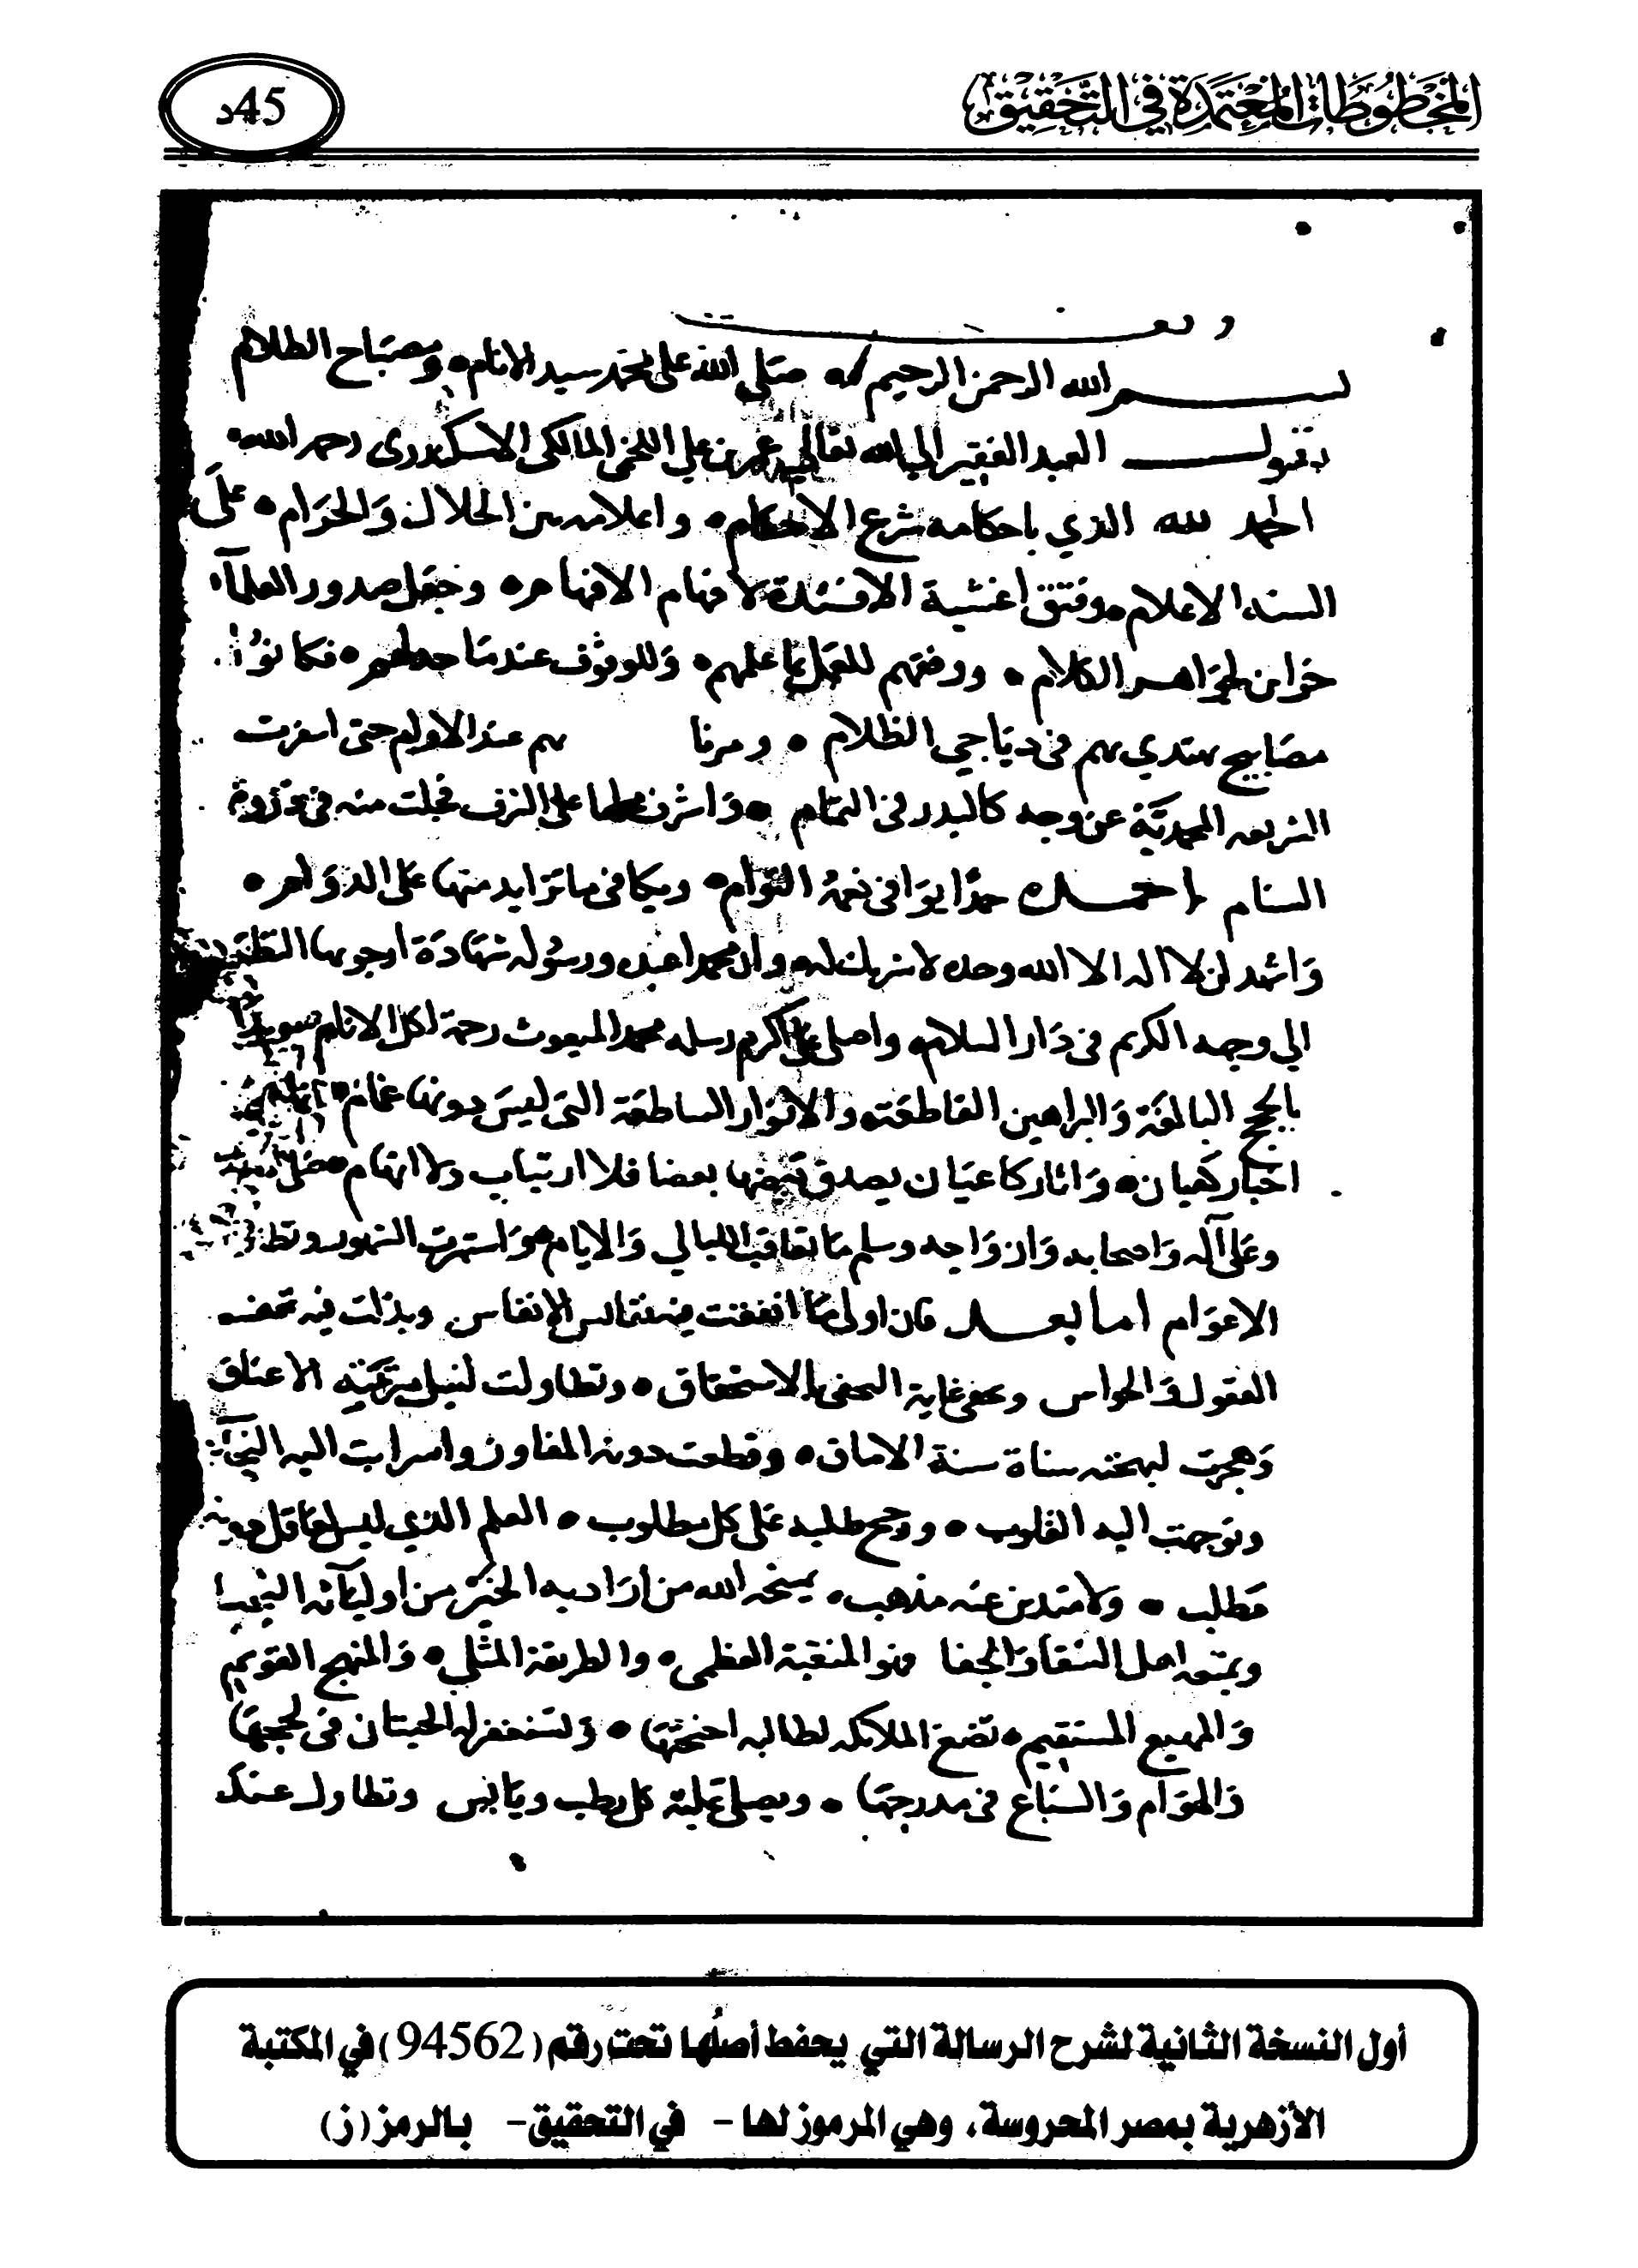 المخطوطات المعتمدة في التحقيق
45د
بسم الله الرحمن الرحيم صلى الله على محمد سيد الانام ومصباح الظلام
يقول العبد الفقير الى الله تعالى عمر بن علي اللخمي المالكي الاسكندري رحمه الله
الحمد لله الذي باحكامه شرع الاحكام واعلامه بين الحلال والحرام على
السنة الاعلام وفتق اغشية الافئدة لافهام الافهام وجعل صدور العلمآء
خزاين لجواهر الكلام ووفقهم للعمل بما علمهم وللوقوف عندما حد لهم فكانوا
مصابيح يهتدي بهم في دياجي الظلام بهم عند الاولم حتى اسفرت
الشريعه المحمدية عن وجه كالبدر في التمام على الشرف فجلت منه في
السنام احمده حمدا يوافي نعمه التوام ويكافي ما تزايد منها على الدوام
واشهد ان لا اله الا الله وحده لا شريك له وان محمدا عبده ورسوله شهادة ارجو بها النظر
الي وجهه الكريم في دار السلام واصلي على اكرم رسله محمد المبعوث رحمة لكل الانام
بالحجج البالغة والبراهين القاطعة والانوار الساطعة التى ليس دونها غمام
اخبار كهيان واثار كاعيان يصدق بعضها بعضا فلا ارتياب ولا اتهام
وعلى آله واصحابه وازواجه وسلم ما تعاقب الليالي والايام واستهرت الشهور
الاعوام اما بعد فان اولى ما انفقت فيه نفائس الانفاس وبذلت فيه محضه
العقول والحواس وتطاولت لنيل الاعناق
وهجرت لبهجته سنة الاماق وقطعت دونه المفاوز واسرابت اليه
وتوجهت اليه القلوب ورجح طلبه على كل مطلوب العلم الذي ليس لعاقل دونه
مطلب ولا متدين عنه مذهب يمنحه الله من اراد به الخير من اوليائه
ويمنعه اهل الشقا والجفا فهو المنقبة العظمى والطريقة المثلى والمنهج القويم
والمهيع المستقيم تضع الملائكه لطالبه اجنحتها وتستغفر له الحيتان في لججها
والهوام والسباع في مدرجها ويصلى عليه كل رطب ويابس وتطاول عنك
أول النسخة الثانية لشرح الرسالة التي يحفظ أصلُها تحت رقم (94562) في المكتبة
الأزهرية بمصر المحروسة، وهي المرموز لها - في التحقيق - بالرمز (ز)